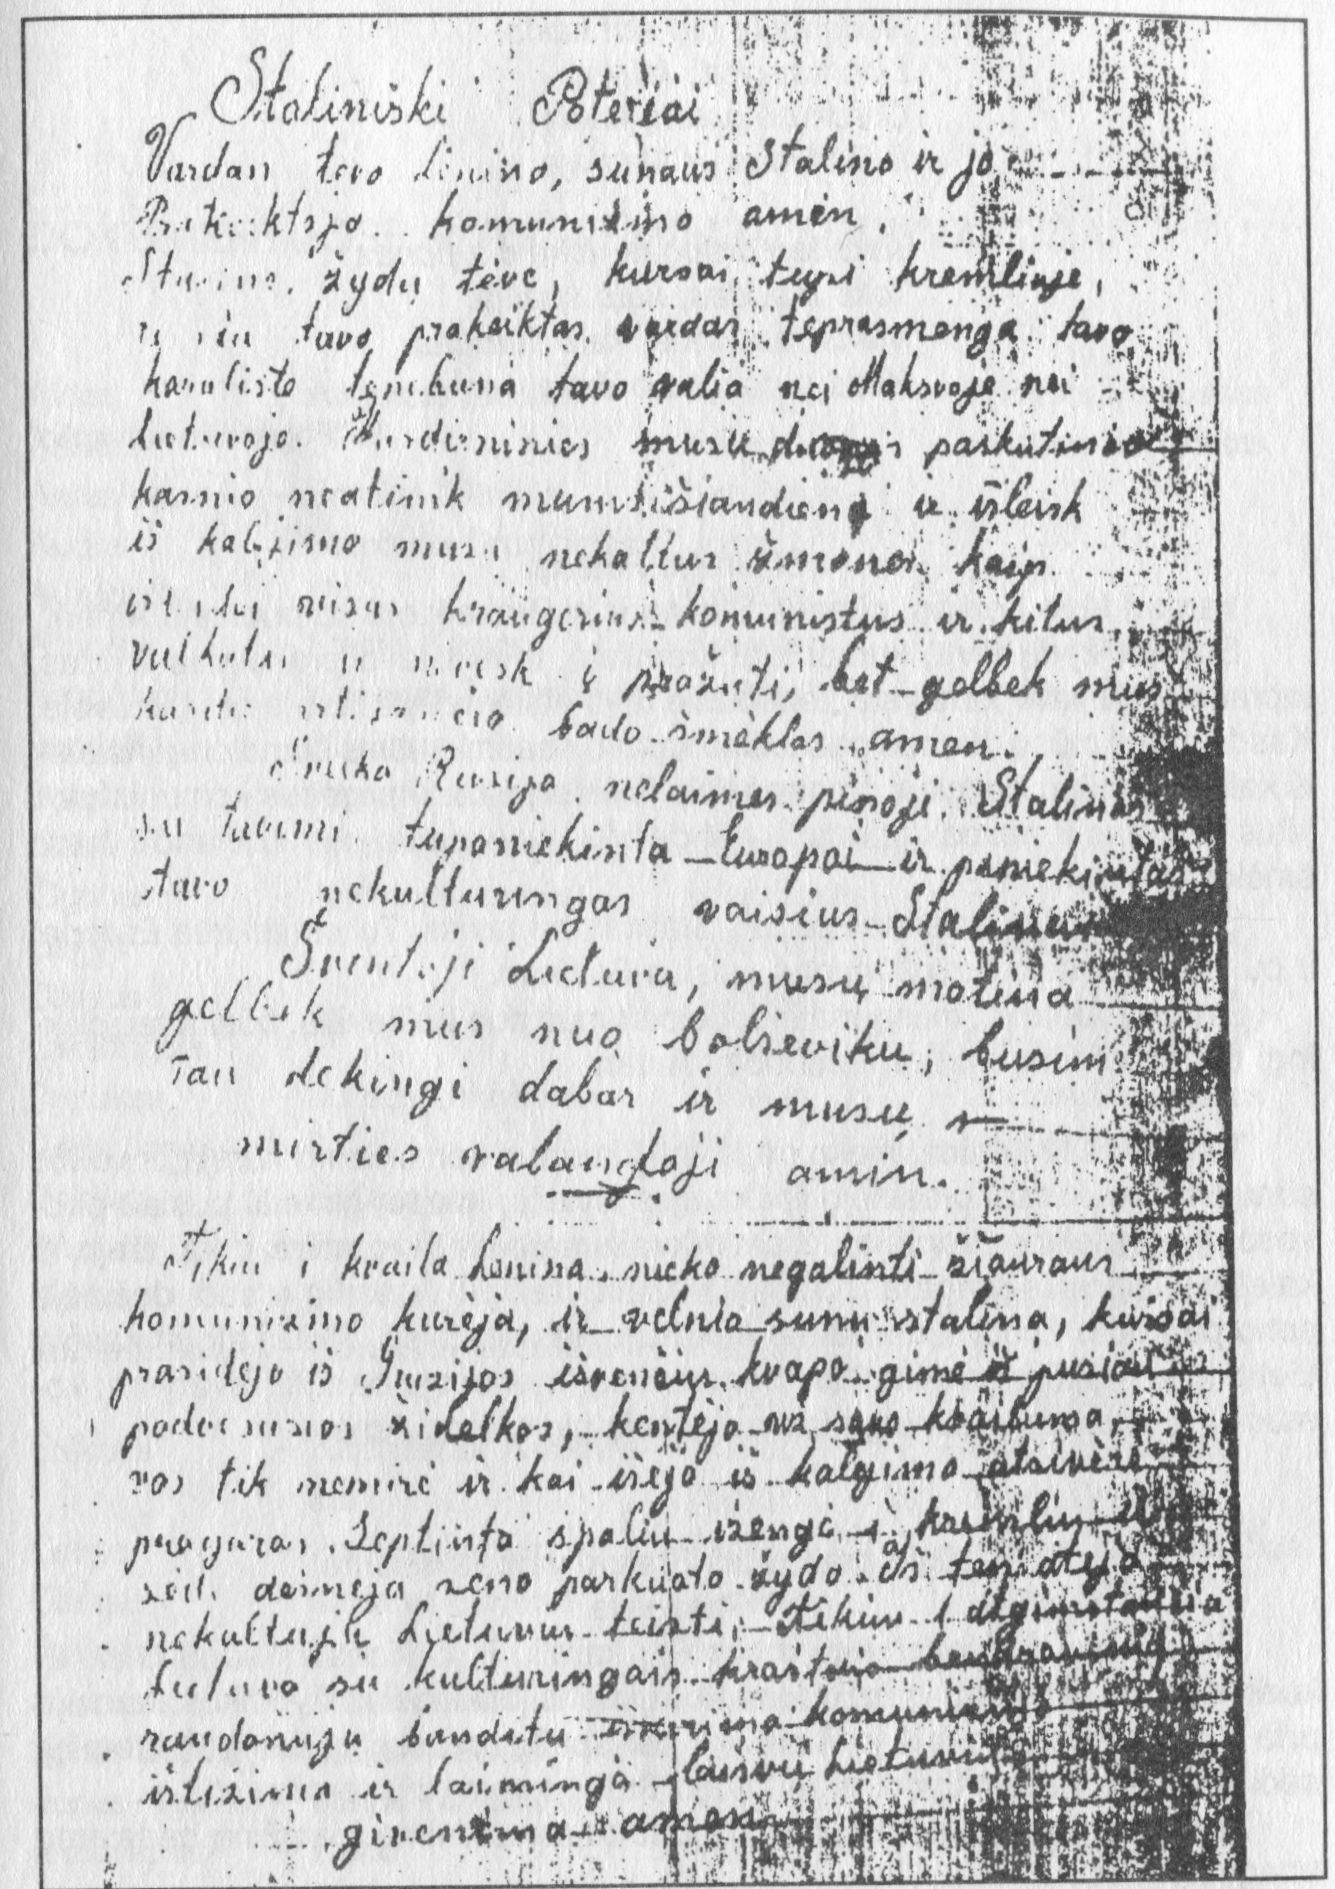 Staliniški Poteriai
Vardan tevo Lenino, sunaus Stalino ir jo
komunizmo amen.
žydų tėve, kursai tupi kremliuje,
tavo prakeiktas vardas, teprasmenga tavo
karaliste tenebuna tavo valia nei Maksvoje nei
Lietuvoje. Kasdieninies musų duonos paskutinio
kasnio neatimk mums šiandieną ir išleisk
iš kalėjimo musų nekaltus žmones kaip
visus kraugerius komunistus ir kitus
į pražuti, bet gelbek mus
bado šmėklos amen.
Sveika Rusija nelaimes pinoji, Stalinas
su tavimi tupaniekinta Europoi ir paniekintas
tavo nekulturingas vaisius Stalinas
Šventoji Lietuva, musų motina
gelbek mus nuo bolševikų, busim
Tau dekingi dabar ir musų
mirties valandoji amin.
Tikiu i kvaila Lenina, nieko negalinti žiauraus
komunizmo kurėja, ir velnio sunu stalina, kursai
prasidėjo iš Gruzijos išvenčius kvapo gimė iš pusiau
židelkos, kentėjo už savo kvailuma,
vos tik nemirė ir kai išėjo iš kalėjimo atsivėrė
pragaras. Septinta spaliu ižengė i kremlių
desineja seno parkuoto žydo iš ten ateja
nekaltuju Lietuvius teisti, Tikiu i atgimstančia
Lietuva su kulturingais kraštais bendravima
raudonuju banditu komunizmo
ištižima ir laiminga laisvų Lietuvių
givenima amen.